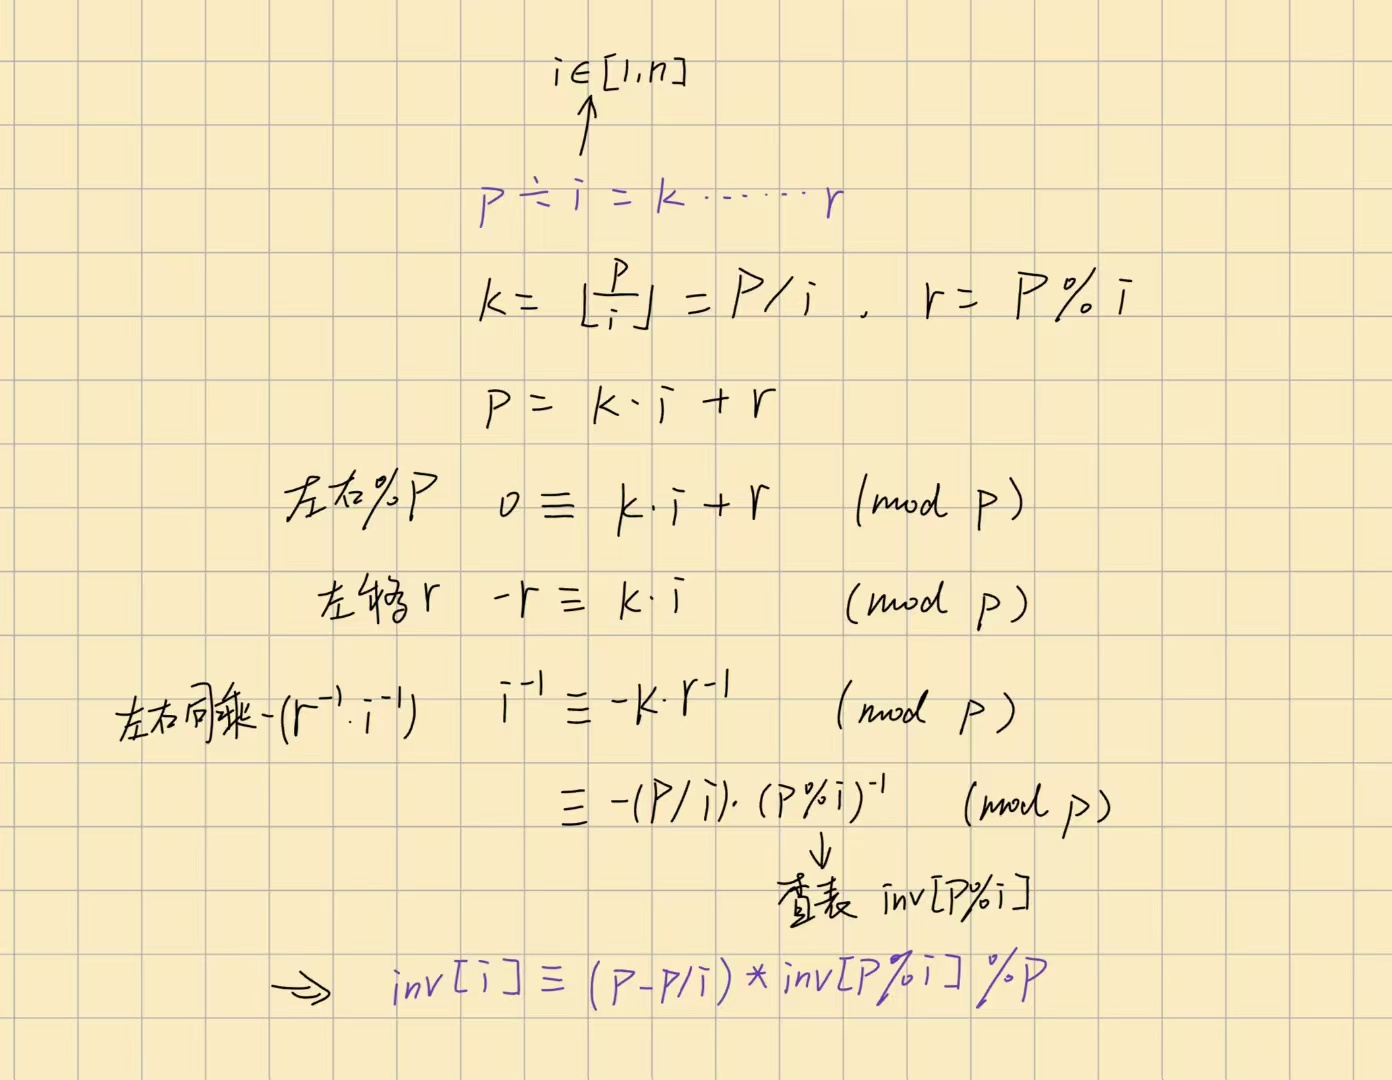 i∈[1,n]
p÷i=k……r
k=⌊p/i⌋=P/i, r=P%i
p=k·i+r
左右%P 0≡k·i+r (mod p)
左移r -r≡k·i (mod p)
左右同乘-(r⁻¹·i⁻¹) i⁻¹≡-k·r⁻¹ (mod p)
≡-(P/i)·(P%i)⁻¹ (mod p)
查表 inv[P%i]
⇒ inv[i]≡(P-P/i)*inv[P%i]%P